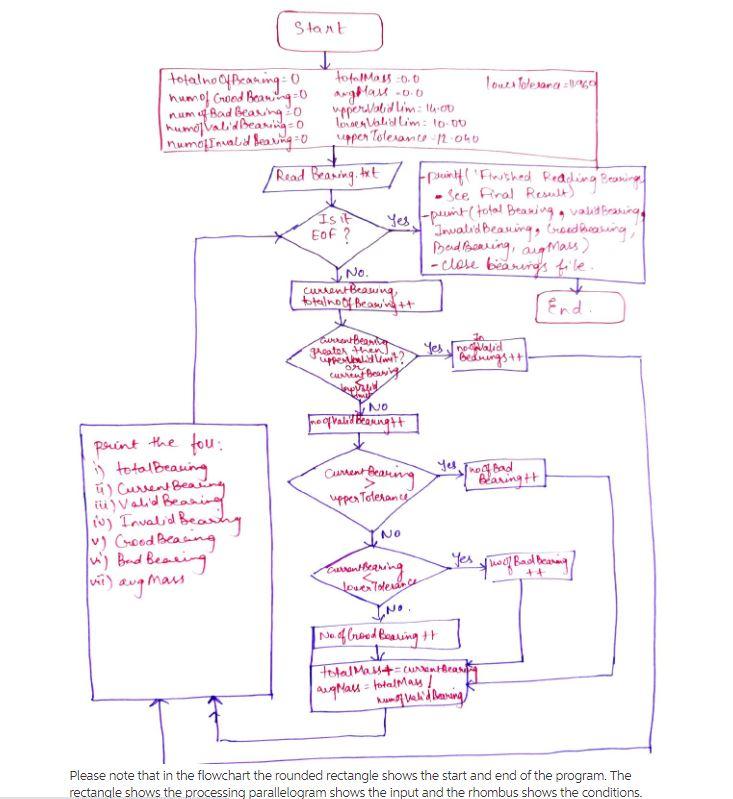 Start
totalnoOfBearing=0
numof Good Bearing=0
num of Bad Bearing=0
numofValidBearing=0
numofInvalid Bearing=0
totalMass=0.0
avgMass=0.0
upperValidLim=14.00
lowerValidLim=10.00
upper Tolerance=12.040
lowerTolerance=11.960
Read Bearing.txt
Is it
EOF ?
Yes
-printf('Finished Reading Bearings
- See Final Result)
-print(total Bearing, validBearing,
InvalidBearing, GoodBearing,
BadBearing, avgMass)
- close bearings file.
End.
No.
currentBearing,
totalnoOfBearing++
currentBearing
greater then
upperValidLimit?
or
current Bearing
<
lowValid
limit
Yes
In
noofValid
Bearings++
NO
noofValidBearing++
print the foll:
i) totalBearing
ii) CurrentBearing
iii) Valid Bearing
iv) Invalid Bearing
v) Good Bearing
vi) Bad Bearing
vii) avg Mass
Current Bearing
>
upperTolerance
Yes
no of Bad
Bearing++
NO
CurrentBearing
<
lowerTolerance
Yes
no of Bad Bearing
++
No.
No. of Good Bearing ++
totalMass+=currentBearing
avgMass = totalMass /
numofValidBearing
Please note that in the flowchart the rounded rectangle shows the start and end of the program. The
rectangle shows the processing parallelogram shows the input and the rhombus shows the conditions.